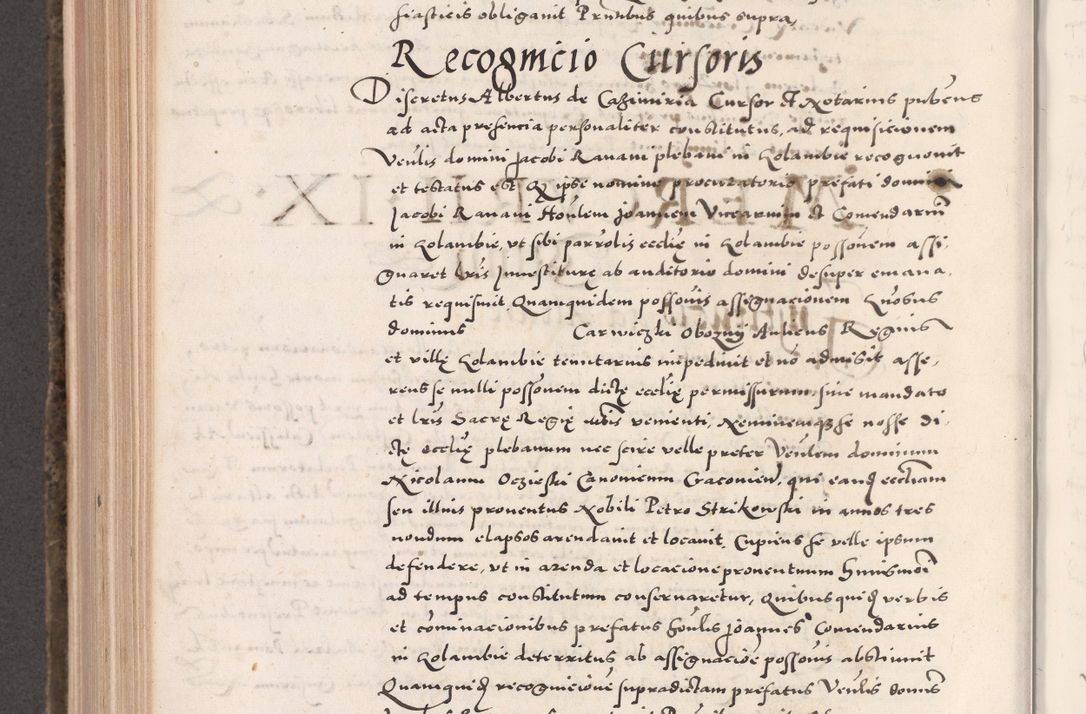 siasticis obliganit Pntibus quibus supra,
Recognicio Cursoris
Discretus Albertus de Cazimiria Cursor et Notarius pubcus
ad acta presencia personaliter constitutus, ad requisicionem
Venlis domini Jacobi Ranani plebani in Kolambie recognouit
et testatus est Q ipse nomine procuratorio prefati domini
Jacobi Ranani Honlem Joannem Vicearium et Comendariu
in Kolambie, vt sibi parrolis ecclię in Kolambie possonem assi,
gnaret lris Inuestiturę ab auditorio domini desuper emana,
tis requisiuit. Quamquidem possonis assignacionem Knobus
dominus Carwiczki Obozny Aulicus Regius
et villę Kolambie tenutarius inpediuit et no admisit asse,
rens se nulli possonem dictę ecclię permissurum, sine mandato
et lris Sacrę Regię Mtis venienti, Neminemq se nosse di
ctę ecclię plebanum nec scire velle preter Venlem dominum
Nicolaum Oczieski Canonicum Cracouien, qui eand eccliam
seu illius prouentus Nobili Petro Strikowski in annos tres
nondum elapsos arendauit et locauit. Cupiens se velle ipsum
defendere, vt in arenda et locacione prouentuum huiusmoi
ad tempus constitutum conseruaretur, Quibusquid verbis
et cominacionibus prefatus honlis Joannes Comendarius
in Kolambie deterritus ab assignacioe possonis abstinuit
Quamquid recognicione supradictam prefatus Venlis domis